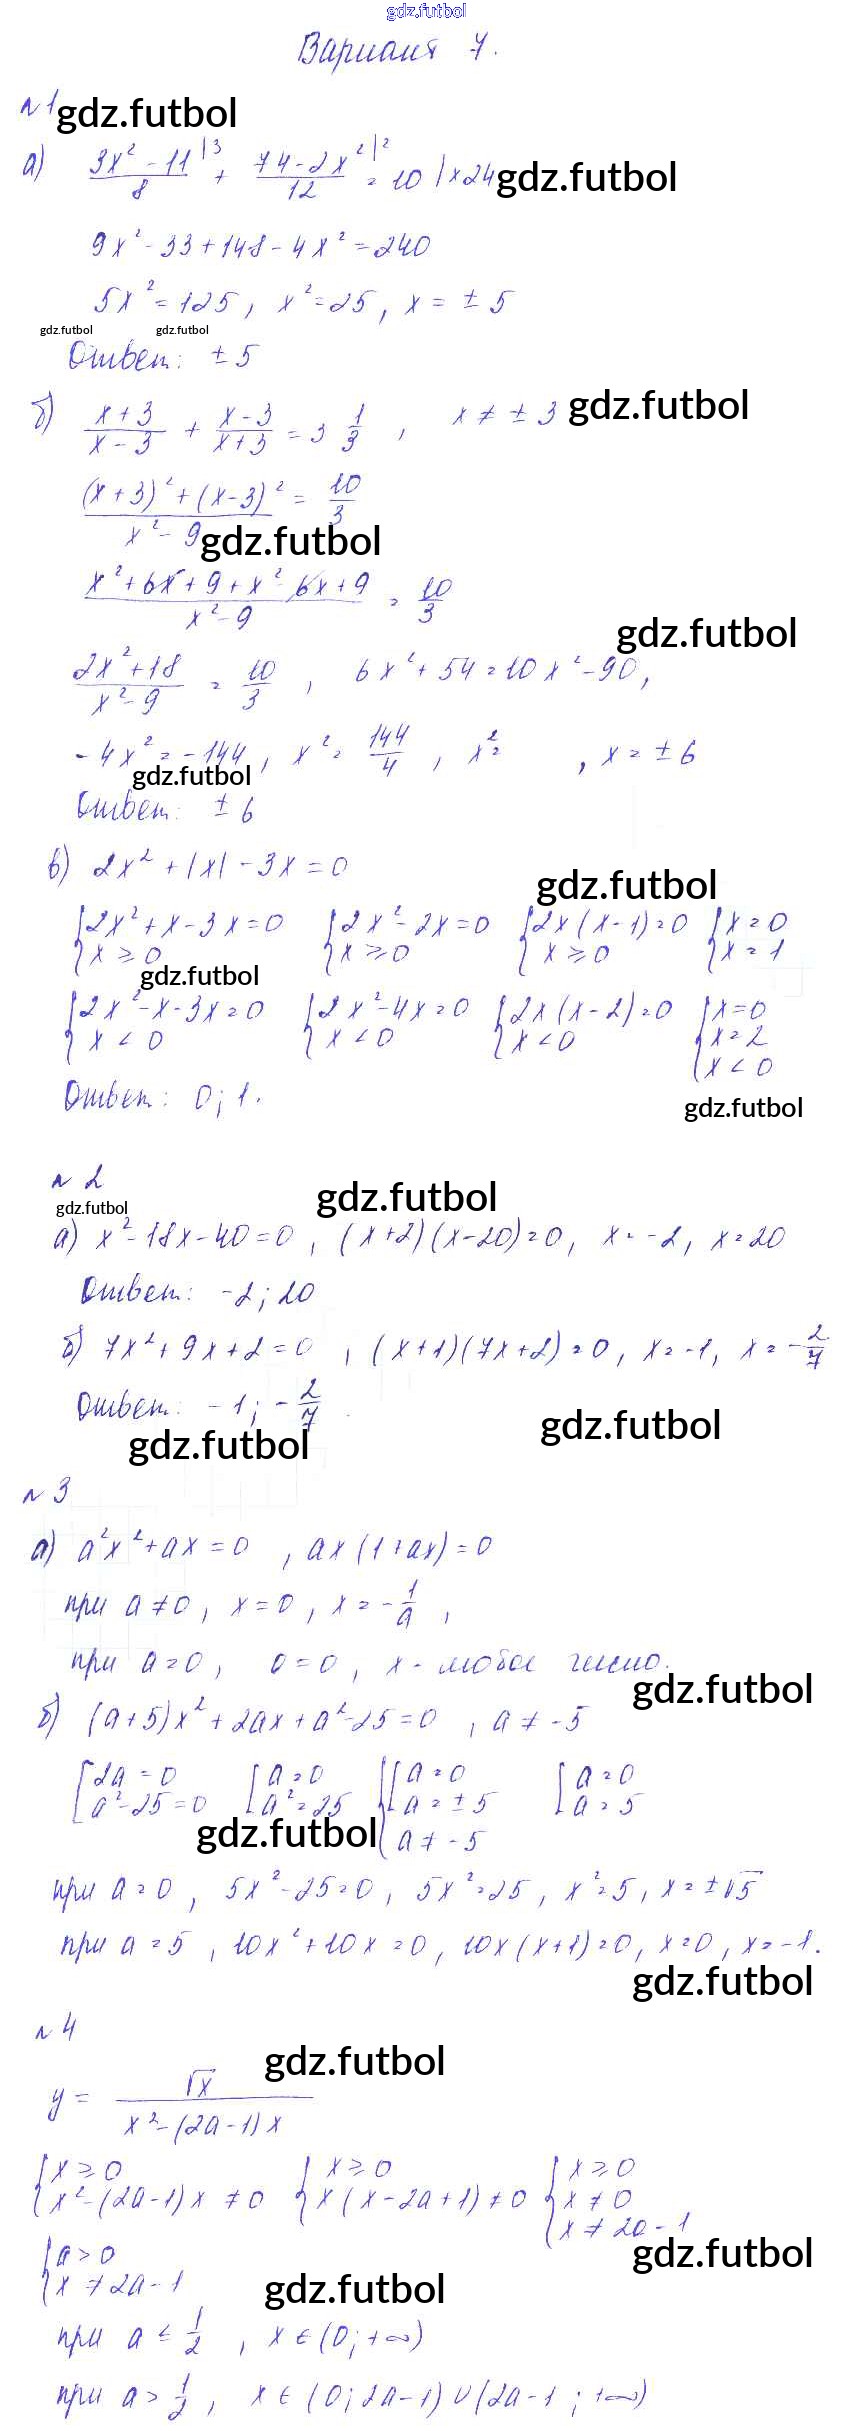 gdz.futbol
Вариант 7.
№1 gdz.futbol
а) (3x² - 11)/8 |3 + (74 - 2x²)/12 |2 = 10 | ×24 gdz.futbol
9x² - 33 + 148 - 4x² = 240
5x² = 125, x² = 25, x = ± 5
gdz.futbol gdz.futbol
Ответ: ± 5
б) (x + 3)/(x - 3) + (x - 3)/(x + 3) = 3 1/3 , x ≠ ± 3 gdz.futbol
((x + 3)² + (x - 3)²)/(x² - 9) = 10/3
gdz.futbol
(x² + 6x + 9 + x² - 6x + 9)/(x² - 9) = 10/3
gdz.futbol
(2x² + 18)/(x² - 9) = 10/3 , 6x² + 54 = 10x² - 90,
- 4x² = - 144, x² = 144/4 , x² = , x = ± 6
gdz.futbol
Ответ: ± 6
в) 2x² + |x| - 3x = 0
gdz.futbol
{2x² + x - 3x = 0 {2x² - 2x = 0 {2x(x - 1) = 0 {x = 0
x ≥ 0 x ≥ 0 x ≥ 0 x = 1
gdz.futbol
{2x² - x - 3x = 0 {2x² - 4x = 0 {2x(x - 2) = 0 {x = 0
x < 0 x < 0 x < 0 x = 2
x < 0
Ответ: 0; 1.
gdz.futbol
№ 2
gdz.futbol gdz.futbol
а) x² - 18x - 40 = 0 , (x + 2)(x - 20) = 0, x = -2, x = 20
Ответ: -2; 20
б) 7x² + 9x + 2 = 0 , (x + 1)(7x + 2) = 0, x = -1, x = - 2/7
Ответ: - 1; - 2/7 .
gdz.futbol gdz.futbol
№ 3
а) a²x² + ax = 0 , ax(1 + ax) = 0
при a ≠ 0, x = 0, x = - 1/a ,
при a = 0, 0 = 0, x - любое число.
gdz.futbol
б) (a + 5)x² + 2ax + a² - 25 = 0 , a ≠ - 5
[2a = 0 [a = 0 {[a = 0 [a = 0
a² - 25 = 0 a² = 25 a = ± 5 a = 5
gdz.futbol a ≠ - 5
при a = 0 , 5x² - 25 = 0, 5x² = 25, x² = 5, x = ± √5
при a = 5 , 10x² + 10x = 0, 10x(x + 1) = 0, x = 0, x = - 1.
gdz.futbol
№ 4
gdz.futbol
y = √x/(x² - (2a - 1)x)
{x ≥ 0 {x ≥ 0 {x ≥ 0
x² - (2a - 1)x ≠ 0 x(x - 2a + 1) ≠ 0 x ≠ 0
x ≠ 2a - 1
gdz.futbol
{a > 0
x ≠ 2a - 1
gdz.futbol
при a ≤ 1/2 , x ∈ (0; +∞)
при a > 1/2 , x ∈ (0; 2a - 1) ∪ (2a - 1 ; +∞)